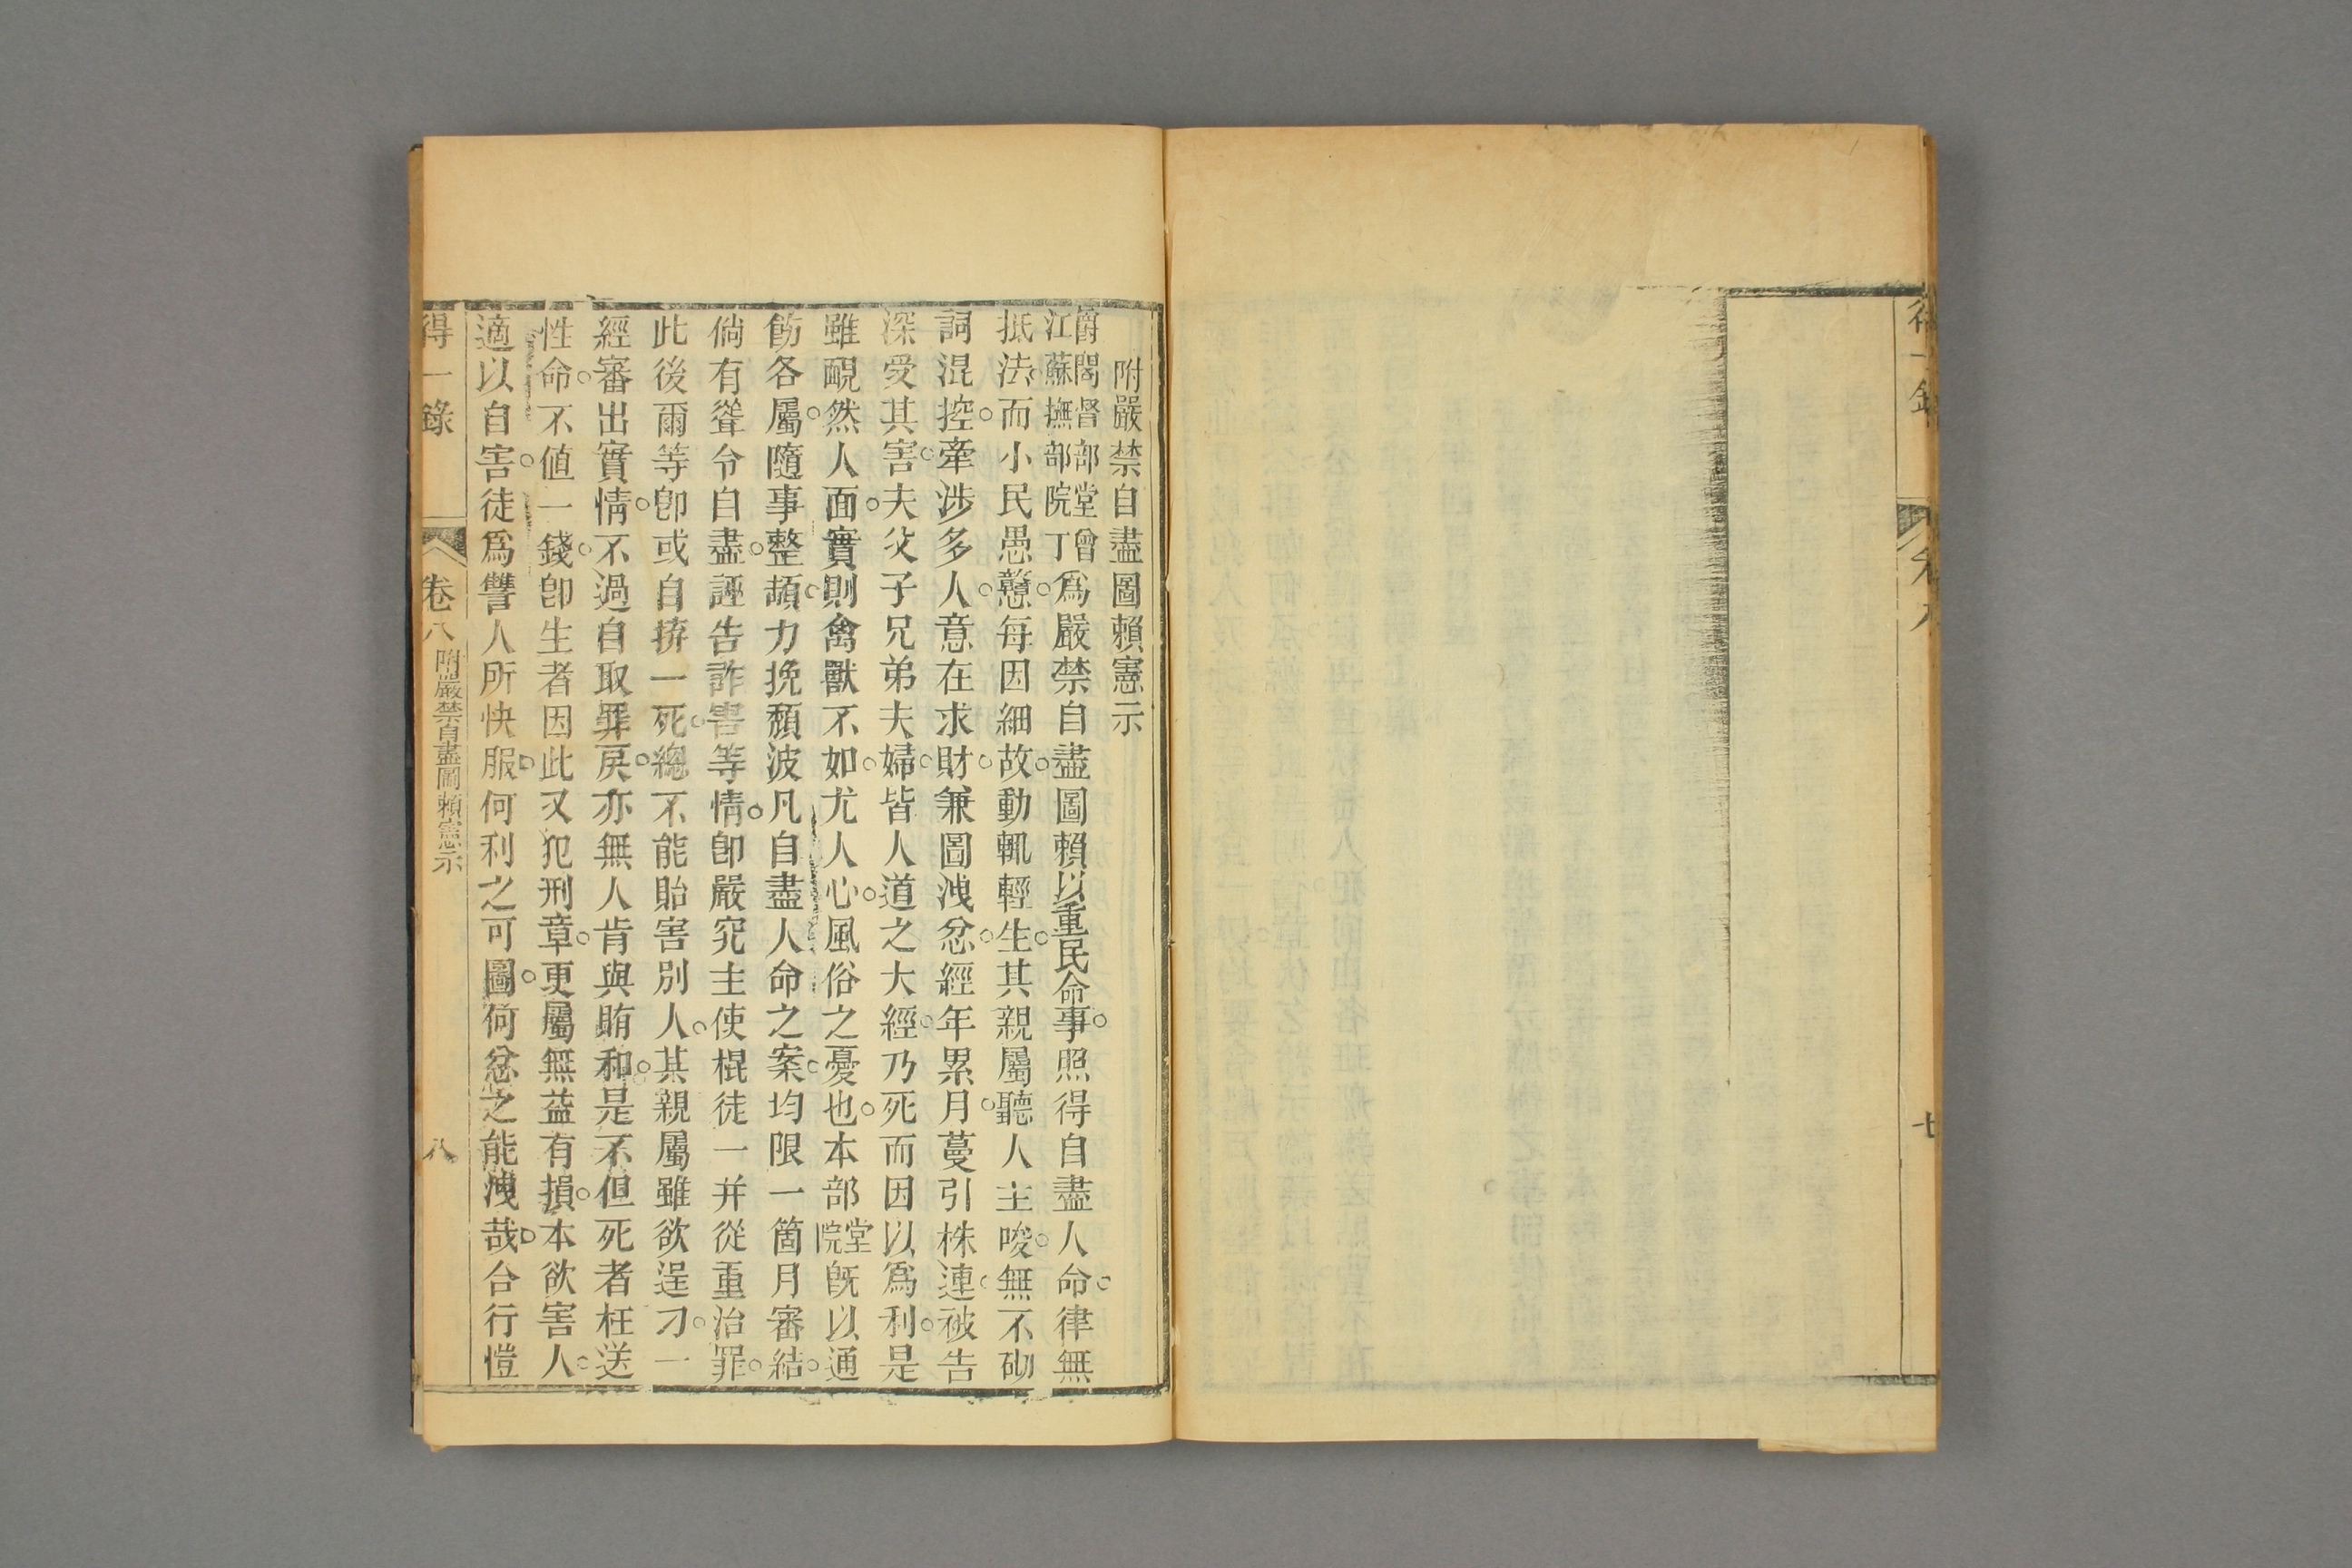 得一錄
卷八
七
附嚴禁自盡圖賴憲示
爵閣督部堂曾
江蘇撫部院丁
爲嚴禁自盡圖賴以重民命事。照得自盡人命。律無
抵法。而小民愚戇。每因細故。動輒輕生。其親屬聽人主唆。無不砌
詞混控。牽涉多人。意在求財。兼圖洩忿。經年累月。蔓引株連。被告
深受其害。夫父子兄弟夫婦。皆人道之大經。乃死而因以爲利。是
雖靦然人面。實則禽獸不如。尤人心。風俗之憂也。本部堂院旣以通
飭各屬。隨事整頓。力挽頹波。凡自盡人命之案。均限一箇月審結。
倘有聳令自盡。誣告詐害等情。卽嚴究主使棍徒。一并從重治罪。
此後爾等卽或自拚一死。總不能貽害別人。其親屬雖欲逞刁。一
經審出實情。不過自取罪戾。亦無人肯與賄和。是不但死者枉送
性命。不值一錢。卽生者因此又犯刑章。更屬無益有損。本欲害人。
適以自害。徒爲讐人所快服。何利之可圖。何忿之能洩哉。合行愷
得一錄
卷八
附嚴禁自盡圖賴憲示
八